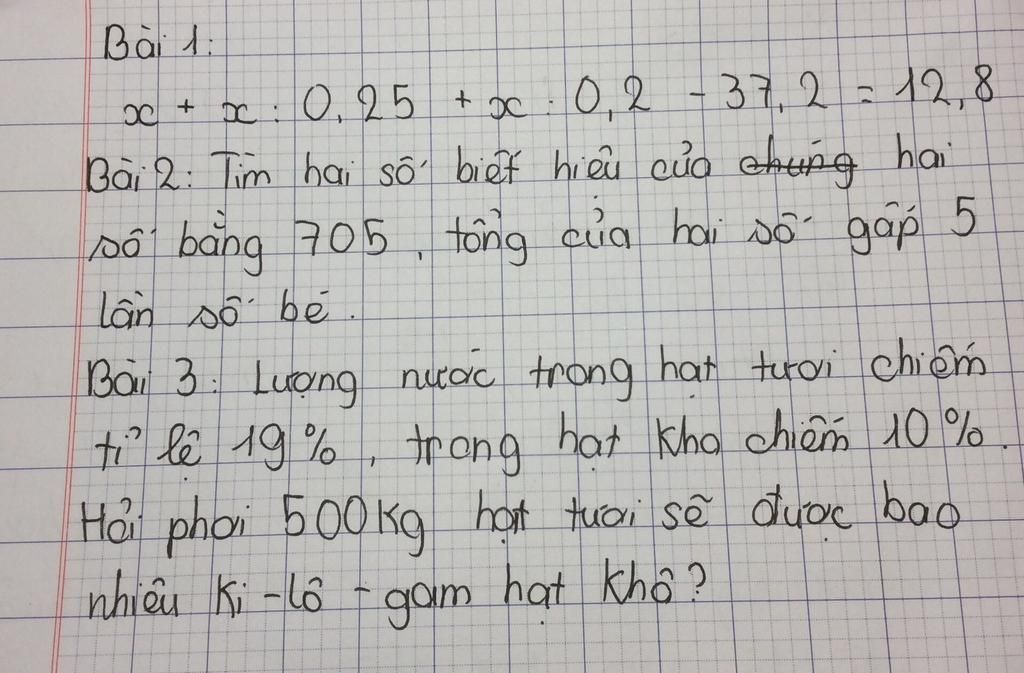 Bài 1:
x + x : 0,25 + x : 0,2 - 37,2 = 12,8
Bài 2: Tìm hai số biết hiệu của chúng hai
số bằng 705, tổng của hai số gấp 5
lần số bé.
Bài 3: Lượng nước trong hạt tươi chiếm
tỉ lệ 19%, trong hạt khô chiếm 10%.
Hỏi phơi 500kg hạt tươi sẽ được bao
nhiêu ki-lô-gam hạt khô?